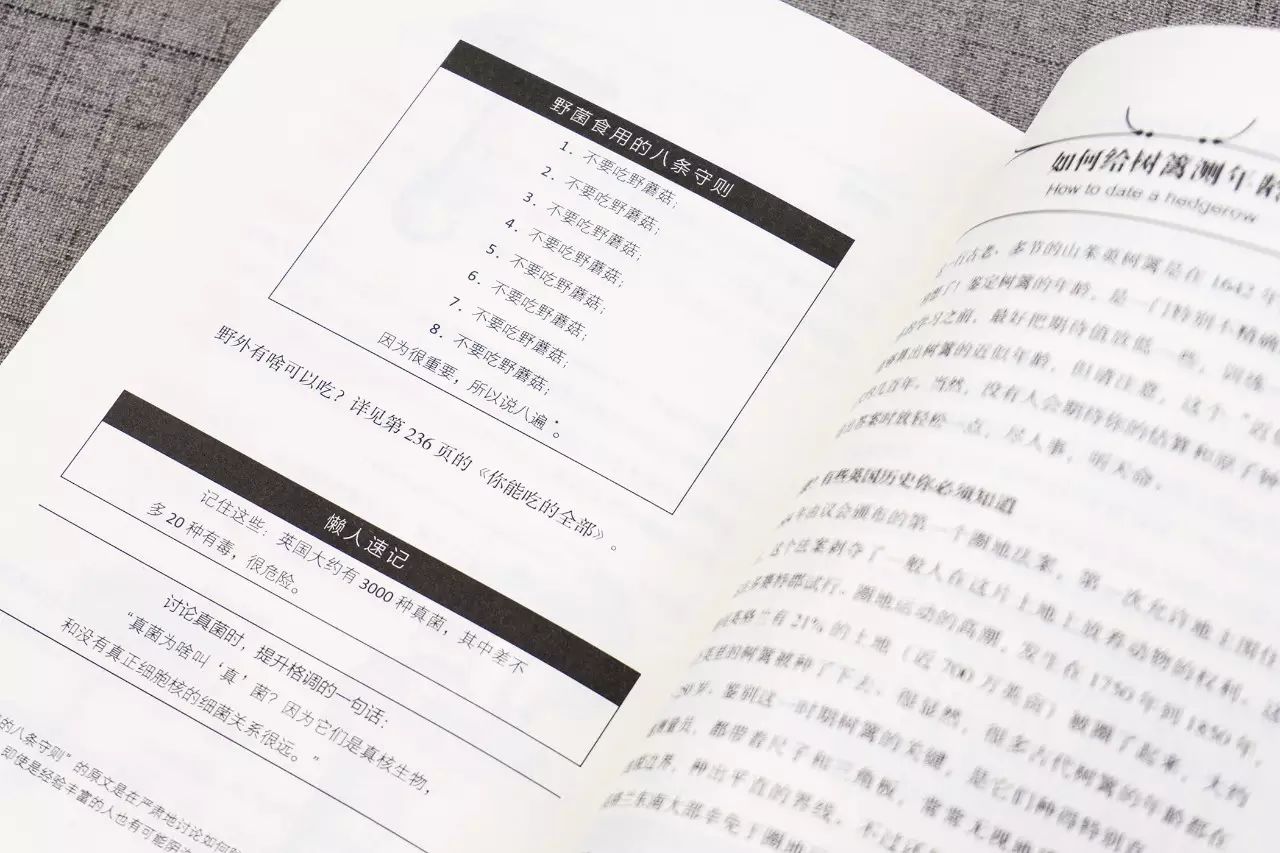 野菌食用的八条守则
1. 不要吃野蘑菇；
2. 不要吃野蘑菇；
3. 不要吃野蘑菇；
4. 不要吃野蘑菇；
5. 不要吃野蘑菇；
6. 不要吃野蘑菇；
7. 不要吃野蘑菇；
8. 不要吃野蘑菇；
因为很重要，所以说八遍*。
野外有啥可以吃？详见第 236 页的《你能吃的全部》。
懒人速记
记住这些：英国大约有 3000 种真菌，其中差不
多 20 种有毒，很危险。
讨论真菌时，提升格调的一句话：
“真菌为啥叫‘真’菌？因为它们是真核生物，
和没有真正细胞核的细菌关系很远。”
的八条守则”的原文是在严肃地讨论如何
即使是经验丰富的人也有可能
如何给树篱测年龄
How to date a hedgerow
古老、多节的山茱萸树篱是在 1642 年
鉴定树篱的年龄，是一门特别不精确
学习之前，最好把期待值放低一些，训练一
算出树篱的近似年龄，但请注意，这个“近
几百年，当然，没有人会期待你的估算和原子钟
答案时放轻松一点，尽人事，听天命。
有些英国历史你必须知道
议会颁布的第一个圈地法案，第一次允许地主围住
这个法案剥夺了一般人在这片土地上放养动物的权利，这
郡试行，圈地运动的高潮，发生在 1750 年到 1850 年，
英格兰有 21% 的土地（近 700 万英亩）被圈了起来，大约
英里的树篱被种了下去，很显然，很多古代树篱的年龄都在
岁，鉴别这一时期树篱的关键，是它们种得特别直
量员，都带着尺子和三角板，常常无视地
边界，种出平直的界线，不过
兰东南大部幸免于圈地